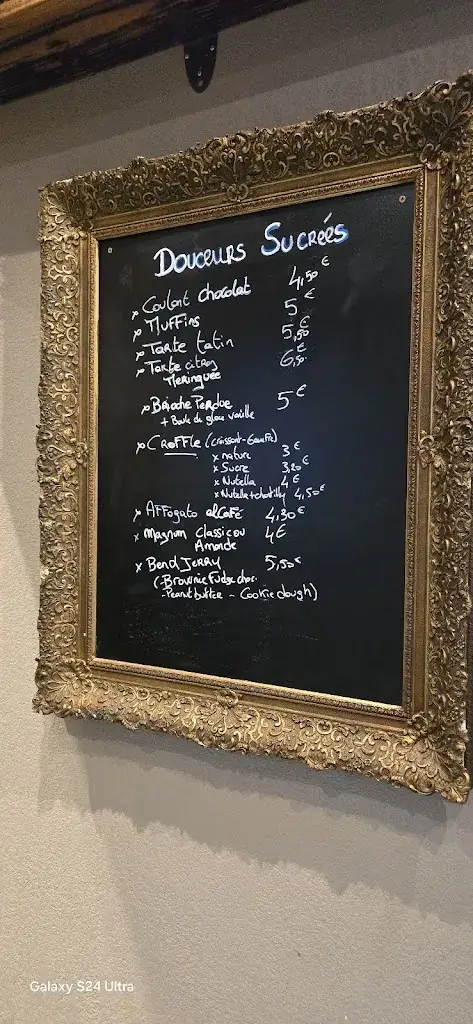 DOUCEURS SUCRÉES
Coulant chocolat 4,50€
Muffins 5€
Tarte tatin 5,50€
Tarte citron 6,50€
Meringuée
Brioche Perdue 5€
+ Boule de glace vanille
CROFFLE (croissant-Gauffre)
x nature 3€
x Sucre 3,20€
x Nutella 4€
x Nutella+chantilly 4,50€
AFFOGATO al CAFÉ 4,30€
x Magnum Classic ou 4€
Amande
x BEN d JERRY 5,50€
(-Brownie Fudge choc.
-Peanut butter - Cookie dough)
Galaxy S24 Ultra